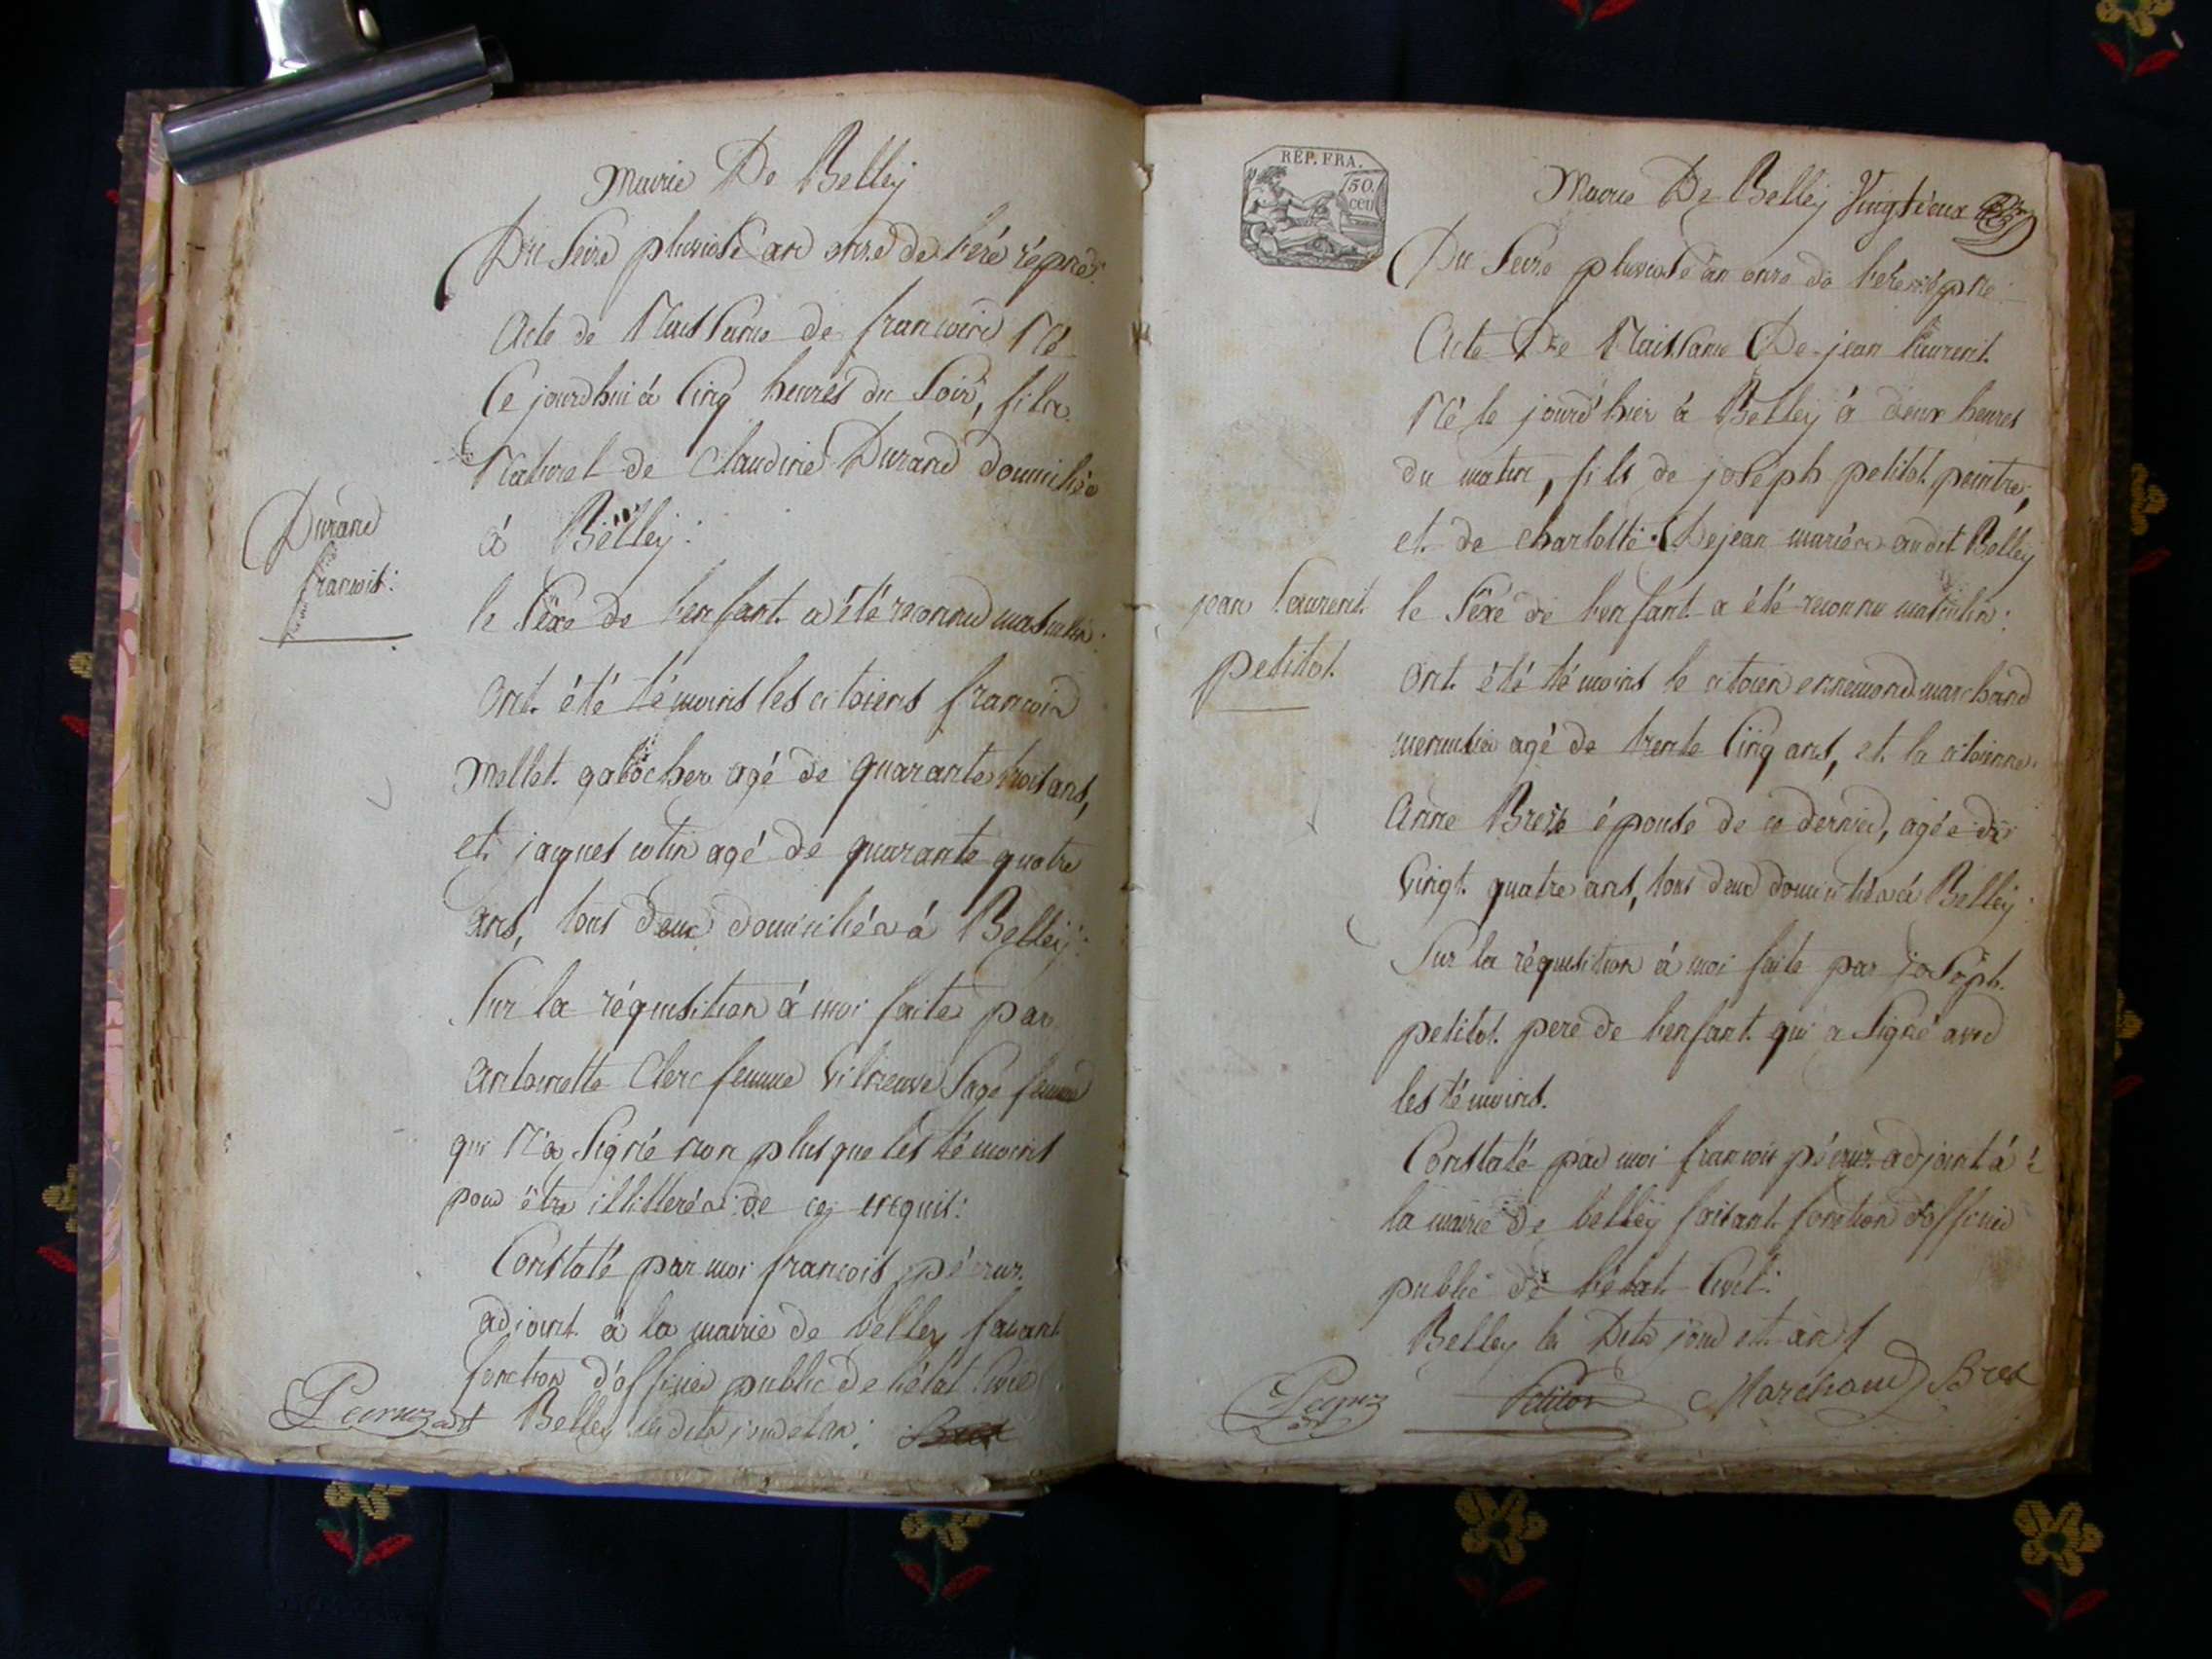 Mairie De Belley
Du seize pluviose an onze de l'ere répne:
Acte de Naissance de francois Né
Ce jourdhui à Cinq heures du Soir, fils
Naturel de Claudine Durand domiciliée
à Belley:
Durand
francois:
le Sexe de l'enfant a été reconnu masculin:
Ont été témoins les citoiens francois
Mellet galocher agé de quarante trois ans,
et jaques cotin agé de quarante quatre
ans, tous deux domiciliés à Belley:
Sur la réquisition à moi faite par
Antoinette Clerc femme Vilneuve Sage femme
qui N'a Signé non plus que les témoins
pour être illitterés de ce requis:
Constaté par moi francois pécruz
adjoint à la mairie de belley faisant
fonction d'officier public de l'état Civil
Belley les dits jour et an:
Pecruz adt
REP. FRA.
50.
cen
Mairie De Belley Vingt deux
Du Seize pluviose an onze de l'ere répne:
Acte De Naissance De jean laurent
Né le jourd'hier à Belley à deux heures
du matin, fils de joseph petitot peintre,
et de charlotte Dejean mariés audit Belley
jean laurent
petitot.
le Sexe de l'enfant a été reconnu masculin:
Ont été témoins le citoien ennemond marchand
menusier agé de trente Cinq ans, et la citoienne
Anne Bret épouse de ce dernier, agée de
Vingt quatre ans, tous deux domiciliés à Belley:
Sur la réquisition à moi faite par joseph
petitot pere de l'enfant qui a Signé avec
les témoins.
Constaté par moi francois pécruz adjoint à
la mairie de belley faisant fonction d'officier
public de l'état Civil:
Belley les Dits jour et an
Pecruz adt Petitot Maréchand Bret